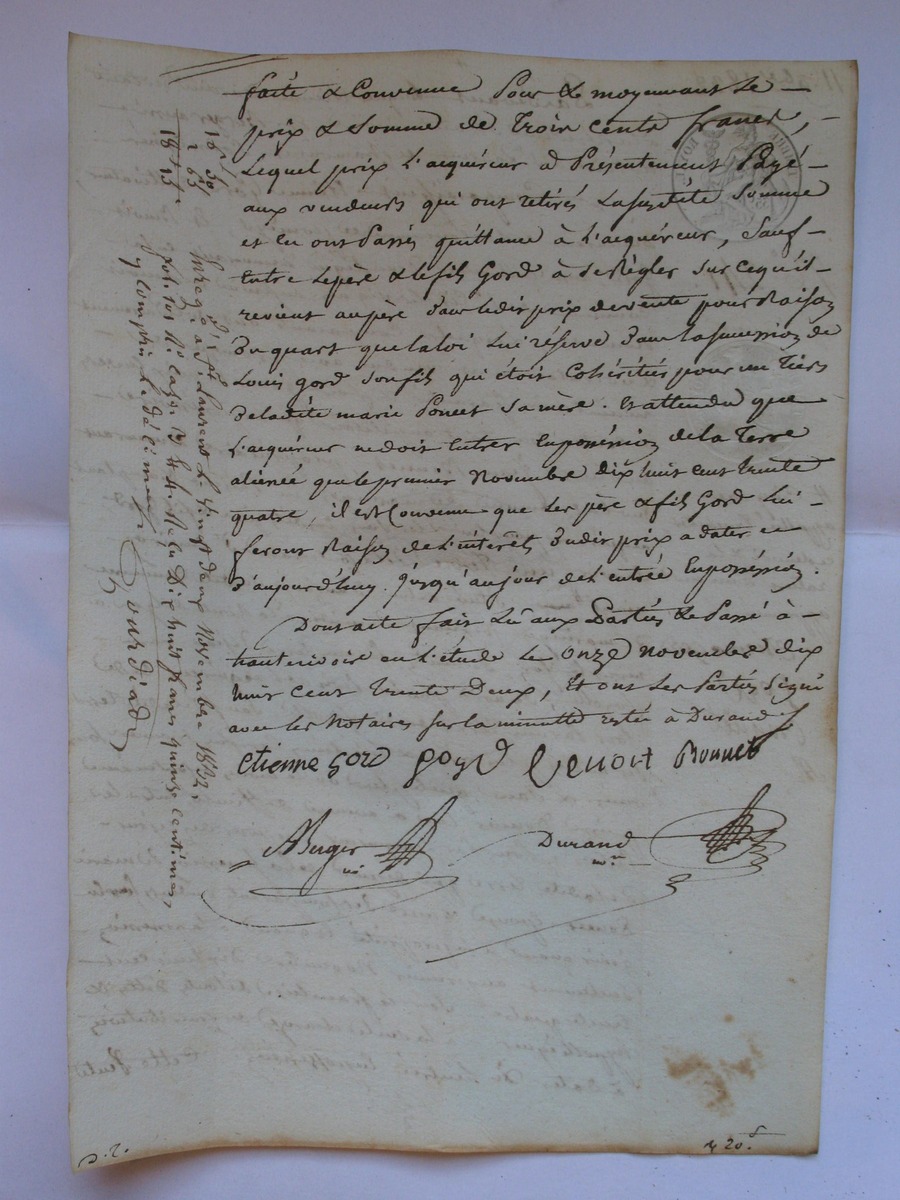 faite & Convenue Pour & moyennant Le
prix & Somme de Trois cents francs,
Lequel prix L'acquéreur a Présentement Payé
aux vendeurs qui ont retirés Lasusditte Somme
et en ont Passés quittance à L'acquéreur, Sauf
Entre Lepère & Lefils Gord à se Règler sur cequ'il
revient aupère Dans Ledit prix devente pour Raison
Du quart que La Loi Lui réserve Dans La succession de
Louis Gord Sonfils qui étoit Cohéritier pour un Tiers
De Laditte marie Poncet Sa mère. Et attendu que
L'acquéreur nedoit Entrer Enpossession de La Terre
aliénée que Le premier Novembre Dix huit cent trente
quatre, il est Convenu que Les père & fils Gord Lui
feront Raison de L'intérêt Dudit prix a dater
D'aujourd'huy jusqu'aujour de L'entrée Enpossession.
Dont acte fait Lû aux Parties & Passé à
hauterivoire en L'étude Le onze novembre dix
huit cent trente Deux, Et ont Les Parties Signé
avec Les Notaires sur La minutte restée à Durand
etienne gord goyd Benoit Bonnet
Berger Durand
nre
16 50
1 65
18 15
Enregé à St Laurent Le vingt deux Novembre 1832,
fol. 101 Ro cases 3 & 4. Reçu Dix huit francs quinze centimes,
y compris Le décime
D. 2.
20 s